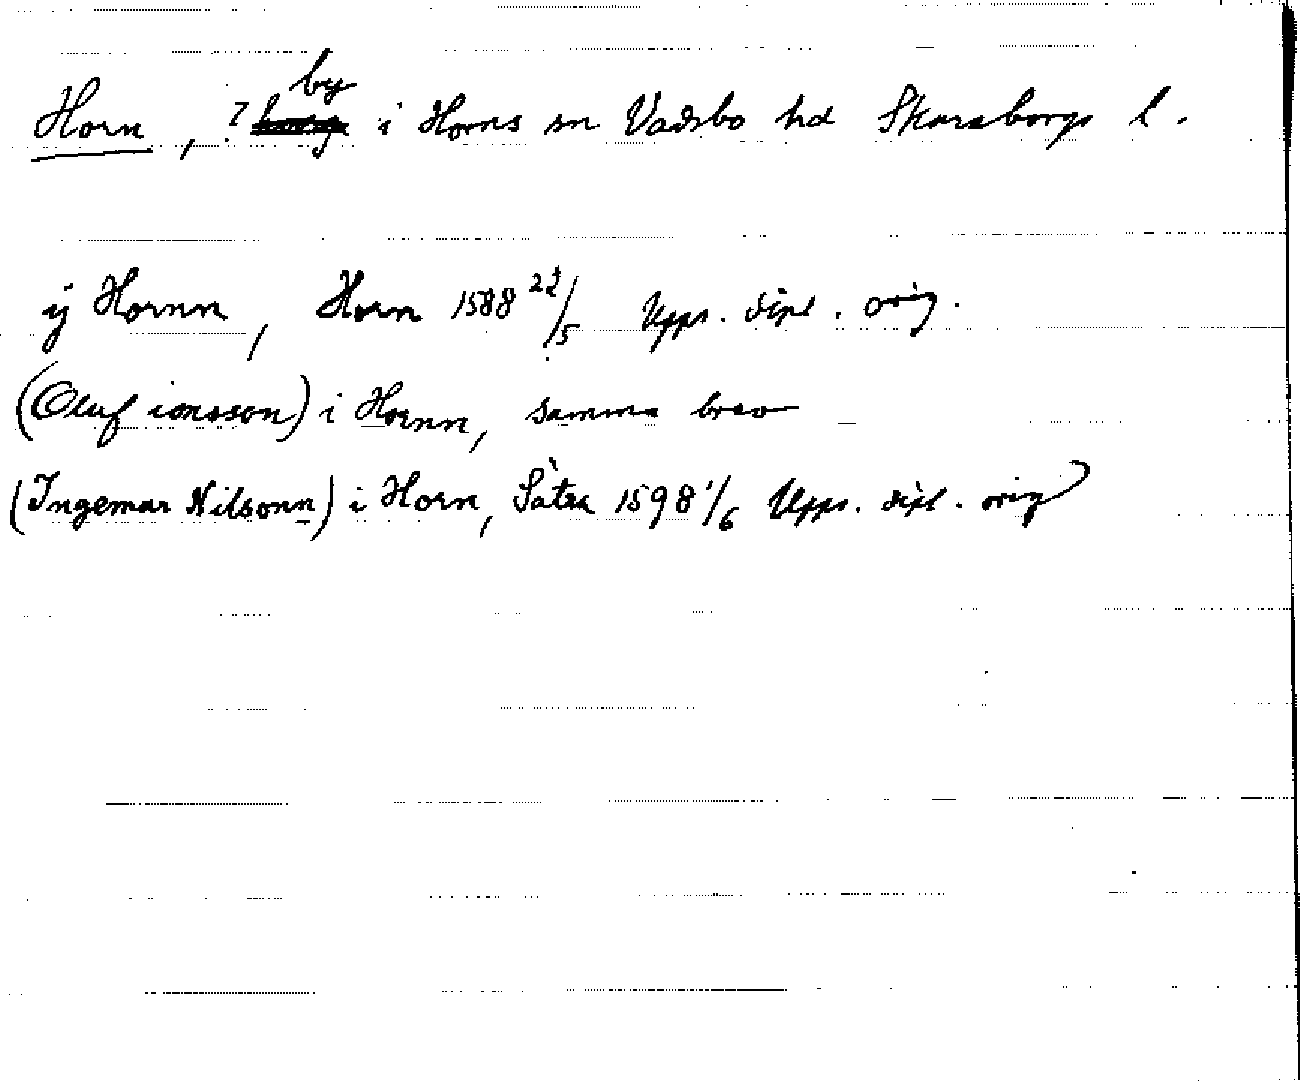 Horn, ? by i Horns sn Vadsbo hd Skaraborgs l.
ij Hornn, Horn 1588 22/5 Upps. dipl. orig.
(Oluf ionsson) i Hornn, samma brev
(Ingemar Nilsonn) i Horn, Säter 1598 1/6 Upps. dipl. orig